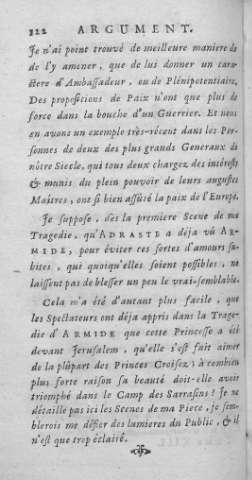 322 ARGUMENT.
Je n'ai point trouvé de meilleure maniere de
de l'y amener, que de lui donner un cara-
ctere d'Ambassadeur, ou de Plénipotentiaire.
Des propositions de Paix n'ont que plus de
force dans la bouche d'un Guerrier. Et nous
en avons un exemple très-récent dans les Per-
sonnes de deux des plus grands Generaux de
nôtre Siecle, qui tous deux chargez des intérêts
& munis du plein pouvoir de leurs augustes
Maitres, ont si bien assûré la paix de l'Europe.
Je suppose, dès la premiere Scene de ma
Tragedie, qu'ADRASTE a déja vû AR-
MIDE, pour éviter ces sortes d'amours su-
bites, qui quoiqu'elles soient possibles, ne
laissent pas de blesser un peu le vrai-semblable.
Cela m'a été d'autant plus facile, que
les Spectateurs ont déja appris dans la Trage-
die d'ARMIDE que cette Princesse a été
devant Jerusalem, qu'elle s'est fait aimer
de la plûpart des Princes Croisez; à combien
plus forte raison sa beauté doit-elle avoir
triomphé dans le Camp des Sarrasins? Je ne
détaille pas ici les Scenes de ma Piece, je sem-
blerois me défier des lumieres du Public, & il
n'est que trop éclairé.